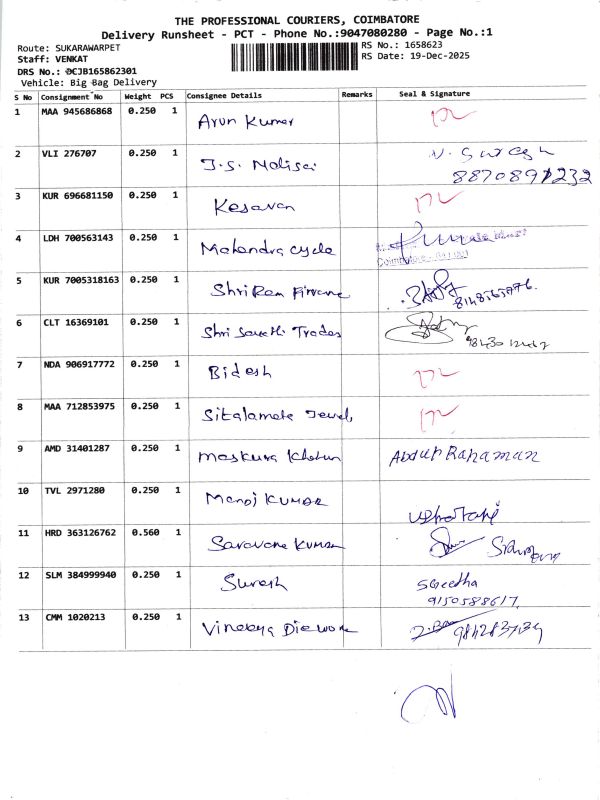 THE PROFESSIONAL COURIERS, COIMBATORE
Delivery Runsheet - PCT - Phone No.:9047080280 - Page No.:1
Route: SUKARAWARPET
RS No.: 1658623
Staff: VENKAT
RS Date: 19-Dec-2025
DRS No.: DCJB165862301
Vehicle: Big Bag Delivery
S No Consignment No Weight PCS Consignee Details Remarks Seal & Signature
1 MAA 945686868 0.250 1 Arun Kumar
2 VLI 276707 0.250 1 J.S. N. Suresh
8870891232
3 KUR 696681150 0.250 1 Kesavan
4 LDH 700563143 0.250 1 Mahendra cycle
5 KUR 7005318163 0.250 1 Shri Ram
6 CLT 16369101 0.250 1 Shri Traders
7 NDA 906917772 0.250 1 Bidesh
8 MAA 712853975 0.250 1 Sitalamata Jewel
9 AMD 31401287 0.250 1 Maskura Khatun Abdur Rahaman
10 TVL 2971280 0.250 1 Manoj KUMAR
11 HRD 363126762 0.560 1 Saravana KUMAR
12 SLM 384999940 0.250 1 Suresh SGeetha
9150588617
13 CMM 1020213 0.250 1